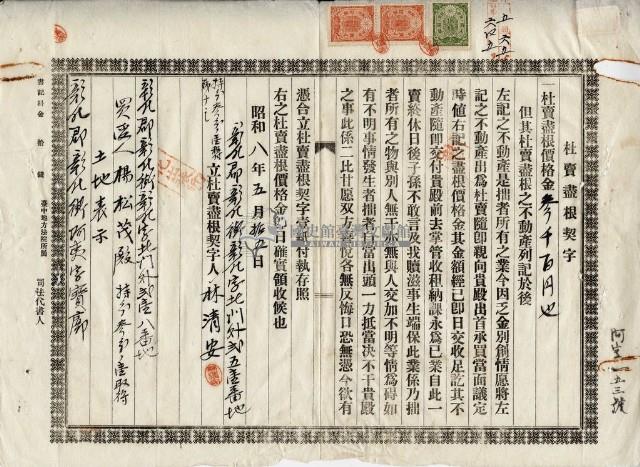 杜賣盡根契字
一杜賣盡根價格金參千百円也
但其杜賣盡根之不動產列記於後
左記之不動產是拙者所有之業今因乏金別創情愿將左
記之不動產出為杜賣隨即親向貴殿出首承買當面議定
時値右記之盡根價格金其金額經已即日交收足訖其不
動產隨即交付貴殿前去掌管收租納課永為己業自此一
賣終休日後子孫不敢言及我贖滋事生端保此業係乃拙
者所有之物與別人無干亦無與人交加不明等情為碍如
有不明事情發生者拙者自當出頭一力抵當決不干貴殿
之事此係二比甘愿双方喜悅各無反悔口恐無憑今欲有
憑合立杜賣盡根契字壹紙付執存照
右之杜賣盡根價格金即日確實領收候也
昭和八年五月拾五日
彰化郡彰化街彰化字北門外貳五壹番地
持分參分ノ壹
立杜賣盡根契字人 林清安
彰化郡彰化街彰化字北門外貳壹八番地
買主 楊松茂殿 持分參分ノ壹取得
土地表示
彰化郡彰化街阿夷字寶廓
書記料金 拾錢
臺中地方法院所屬
司法代書人
阿字一五三號